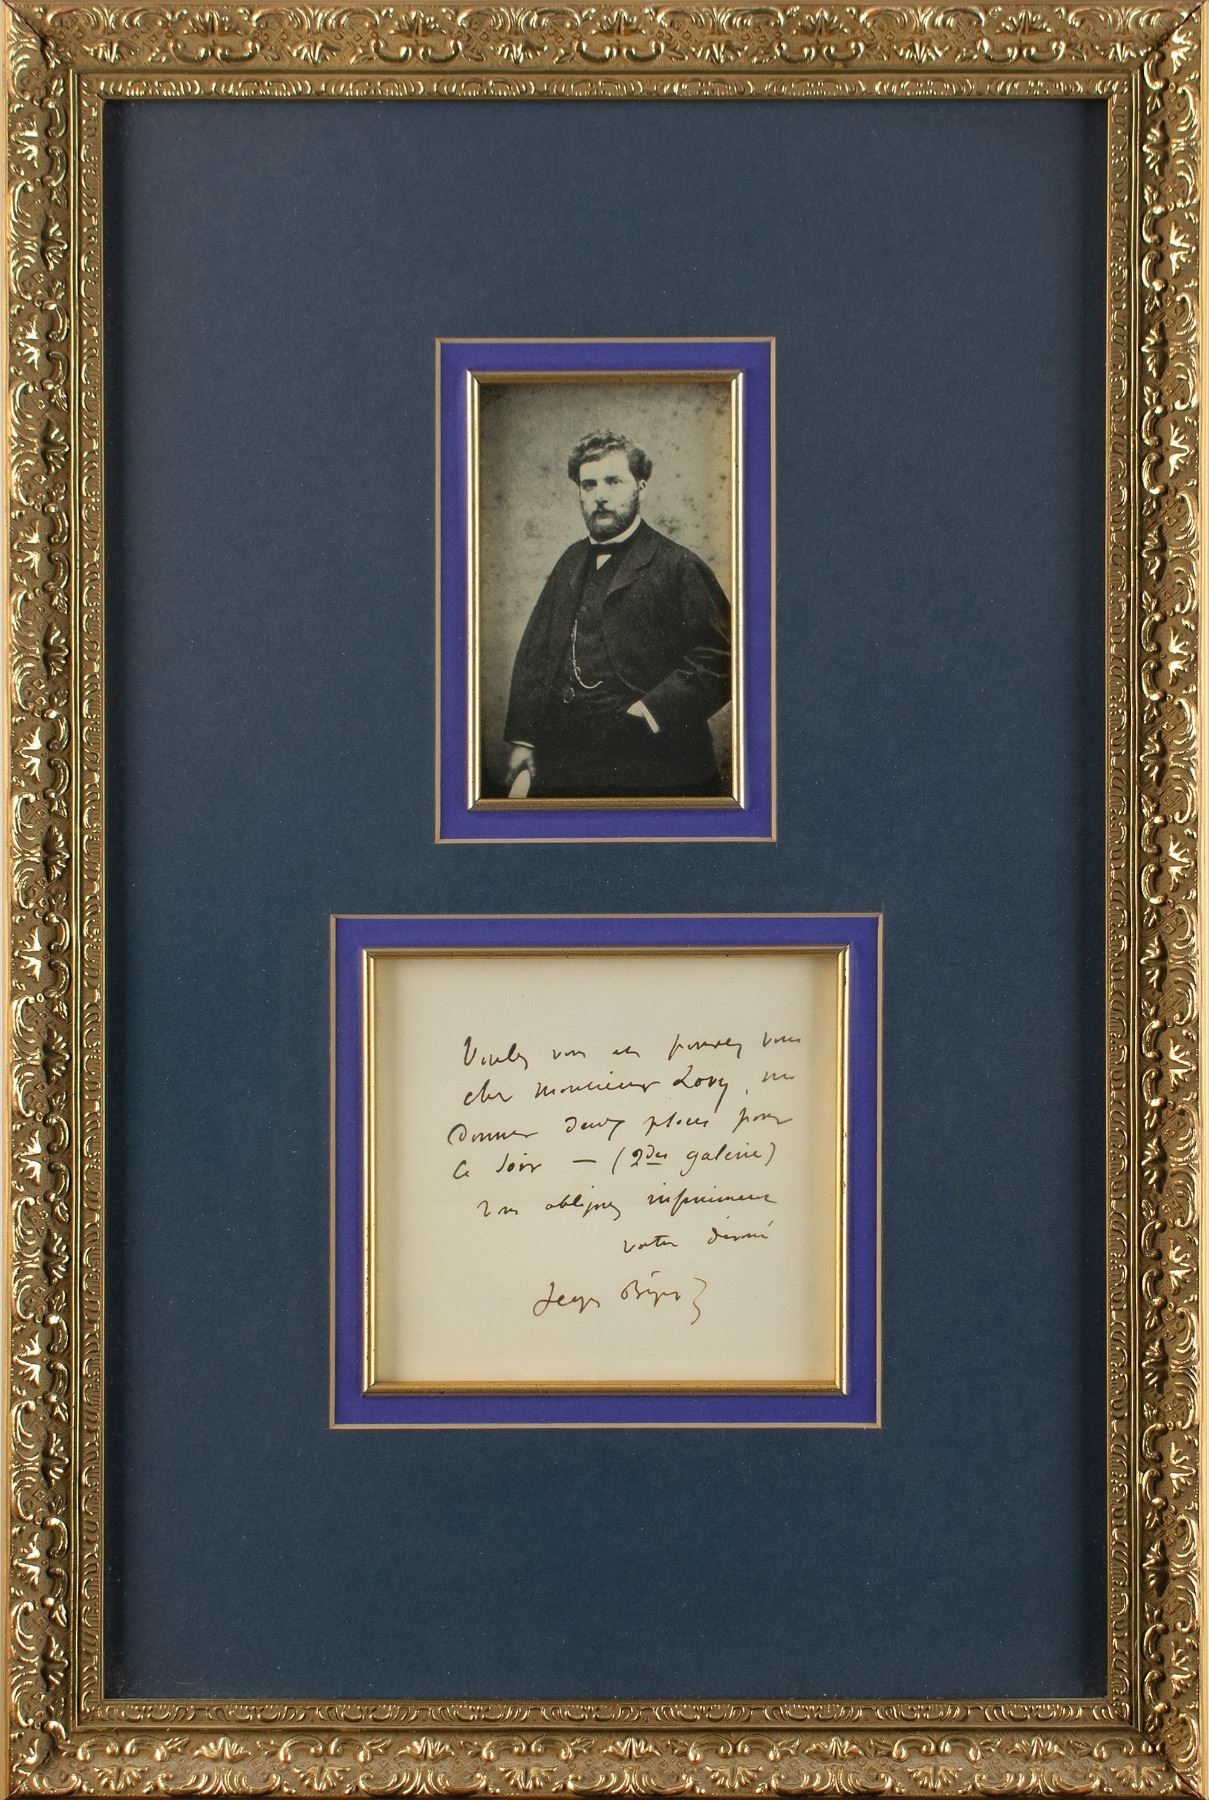 Voulez vous et pouvez vous
cher Monsieur Lovy, me
donner deux places pour
ce soir — (2des galerie)
Vous obligerez infiniment
votre dévoué
Georges Bizet